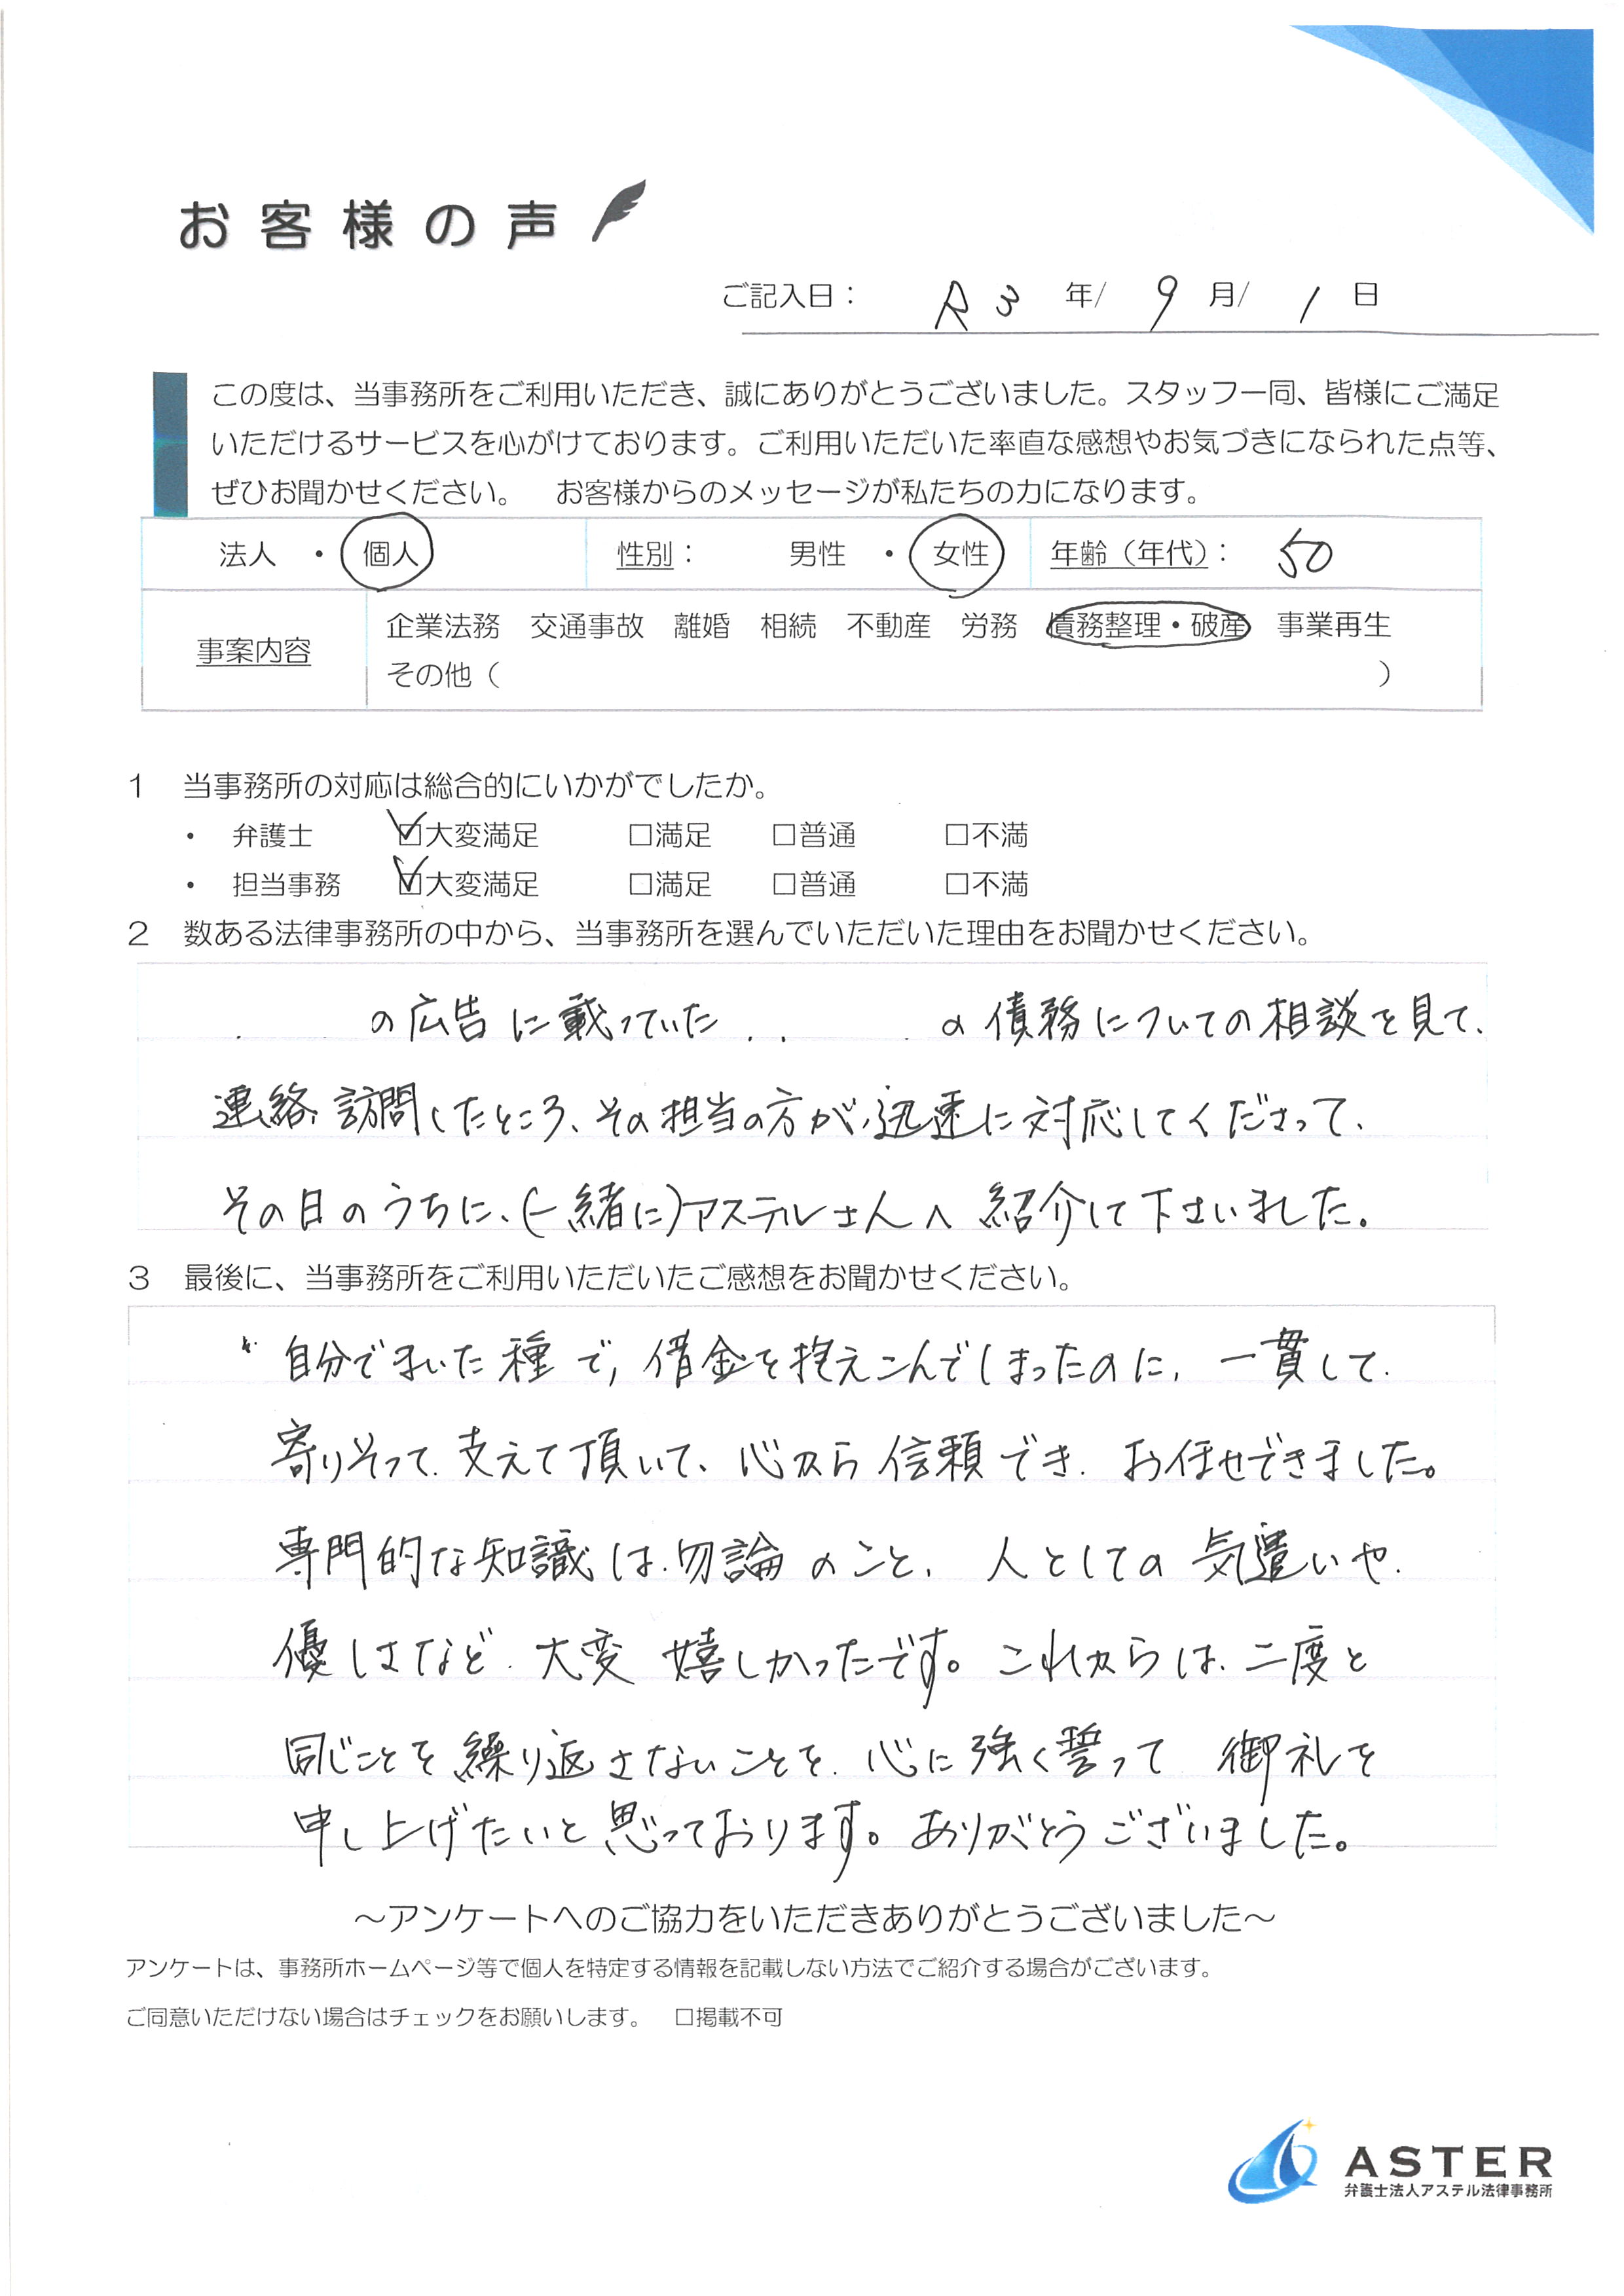 お客様の声
ご記入日： R3 年/ 9 月/ 1 日
この度は、当事務所をご利用いただき、誠にありがとうございました。スタッフ一同、皆様にご満足
いただけるサービスを心がけております。ご利用いただいた率直な感想やお気づきになられた点等、
ぜひお聞かせください。　お客様からのメッセージが私たちの力になります。
法人 ・ 個人 性別： 男性 ・ 女性 年齢（年代）： 50
企業法務 交通事故 離婚 相続 不動産 労務 債務整理・破産 事業再生
事案内容
その他（ ）
1 当事務所の対応は総合的にいかがでしたか。
・ 弁護士 ☑大変満足 □満足 □普通 □不満
・ 担当事務 ☑大変満足 □満足 □普通 □不満
2 数ある法律事務所の中から、当事務所を選んでいただいた理由をお聞かせください。
の広告に載っていた の債務についての相談を見て、
連絡、訪問したところ、その担当の方が、迅速に対応してくださって、
その日のうちに、(一緒に)アステルさんへ 紹介して下さいました。
3 最後に、当事務所をご利用いただいたご感想をお聞かせください。
自分でまいた種で、借金を抱えこんでしまったのに、一貫して、
寄りそって、支えて頂いて、心から信頼でき、お任せできました。
専門的な知識は、勿論のこと、人としての気遣いや、
優しさなど、大変 嬉しかったです。これからは、二度と
同じことを繰り返さないことを、心に強く誓って 御礼を
申し上げたいと思っております。ありがとうございました。
～アンケートへのご協力をいただきありがとうございました～
アンケートは、事務所ホームページ等で個人を特定する情報を記載しない方法でご紹介する場合がございます。
ご同意いただけない場合はチェックをお願いします。　□掲載不可
ASTER
弁護士法人アステル法律事務所